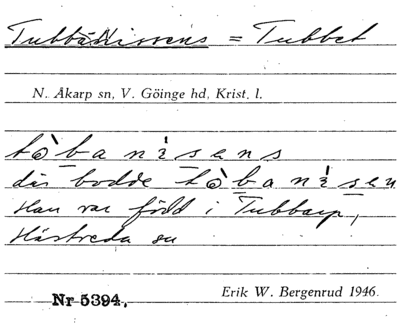 Tubbanissens = Tubbet
N. Åkarp sn, V. Göinge hd, Krist. l.
där bodde
Han var född i Tubbarp,
Hästveda sn
Nr 5394.
Erik W. Bergenrud 1946.